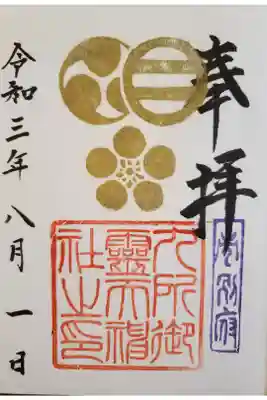 奉拝
別府
六所御
靈天神
社之印
令和三年八月一日